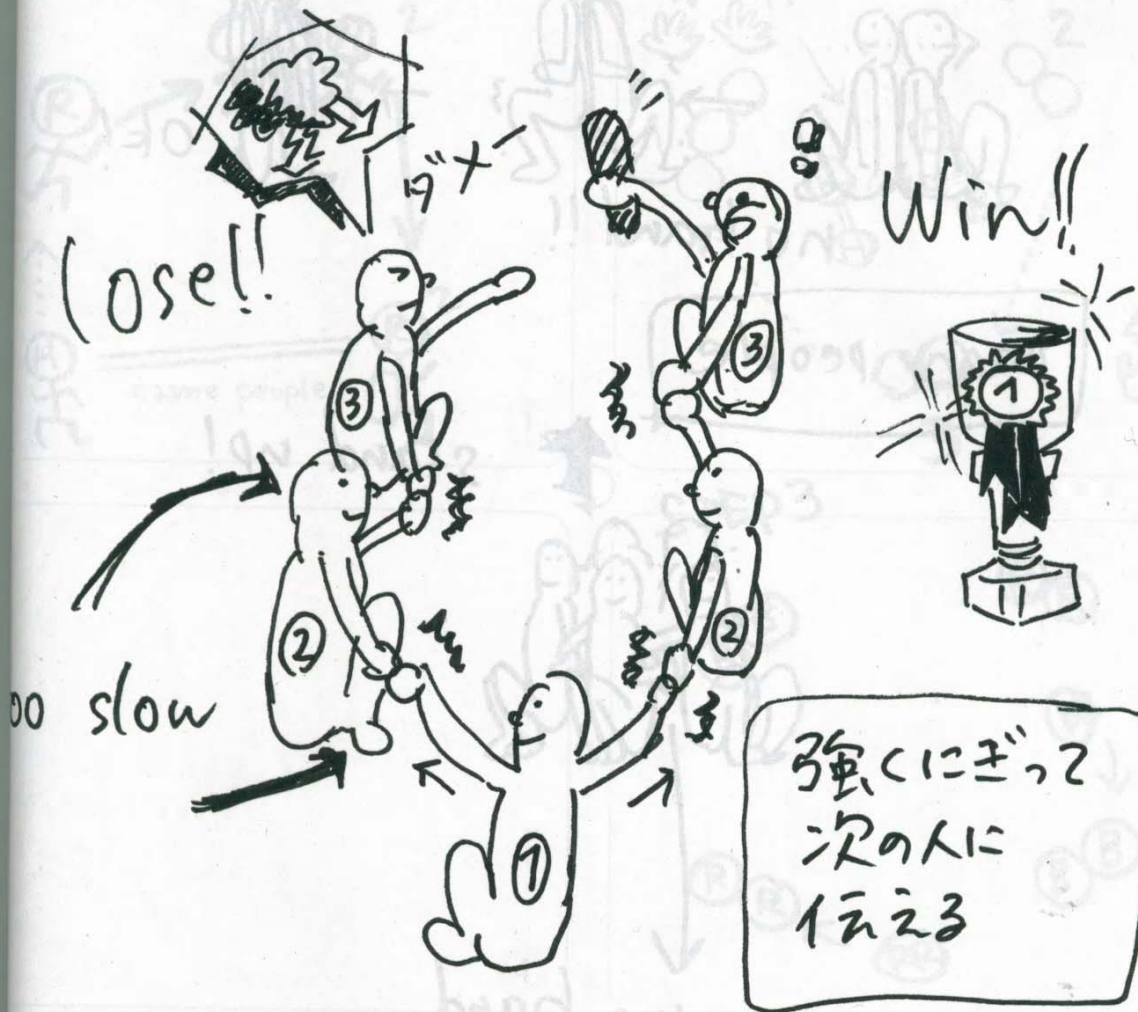 ダメー
Lose!!
Win!!
3
3
1
2
2
slow
1
強くにぎって
次の人に
伝える